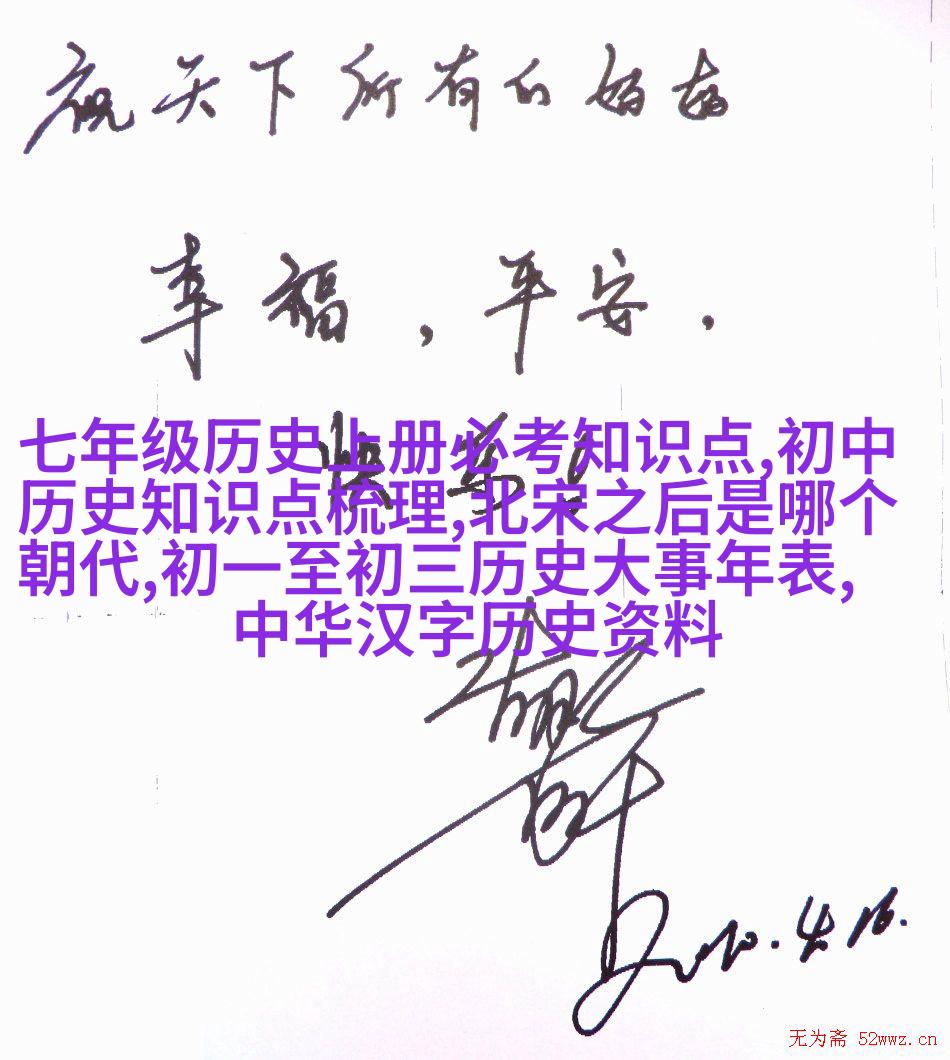 祝天下所有的妈妈
幸福，平安，
快乐！
七年级历史上册必考知识点,初中
历史知识点梳理,北宋之后是哪个
朝代,初一至初三历史大事年表,
中华汉字历史资料
2010.4.16.
无为斋 52wwz.cn